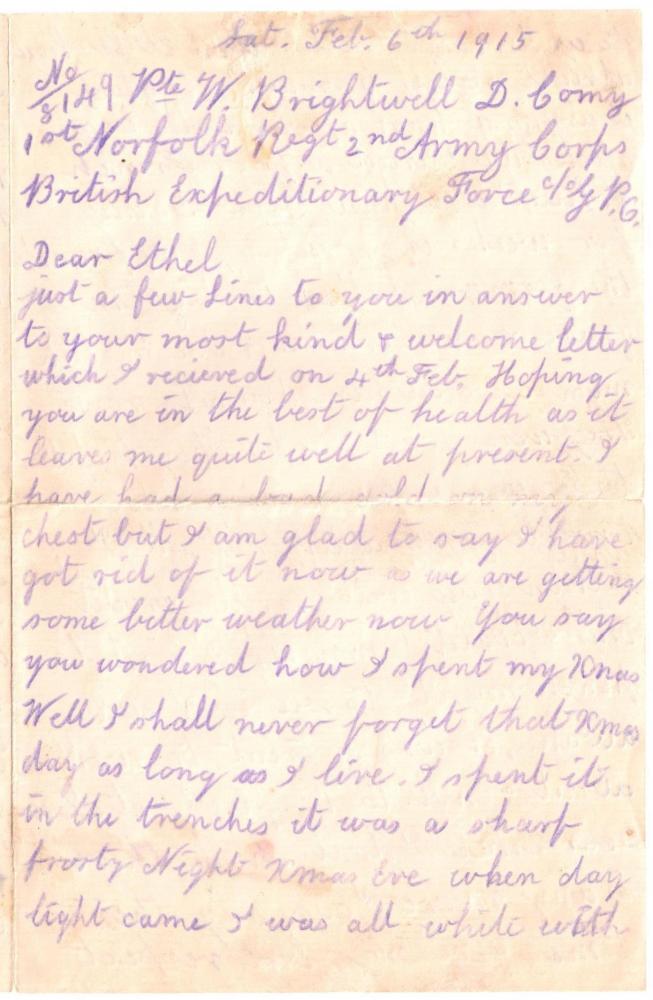 Sat. Feb. 6th 1915
No 8149 Pte W. Brightwell D. Comy
1st Norfolk Regt 2nd Army Corps
British Expeditionary Force c/o G.P.O.
Dear Ethel
just a few Lines to you in answer
to your most kind & welcome letter
which I recieved on 4th Feb. Hoping
you are in the best of health as it
leaves me quite well at present. I
have had a bad cold on my
chest but I am glad to say I have
got rid of it now as we are getting
some better weather now You say
you wondered how I spent my Xmas
Well I shall never forget that Xmas
day as long as I live. I spent it
in the trenches it was a sharp
frosty Night Xmas Eve when day
light came I was all white with